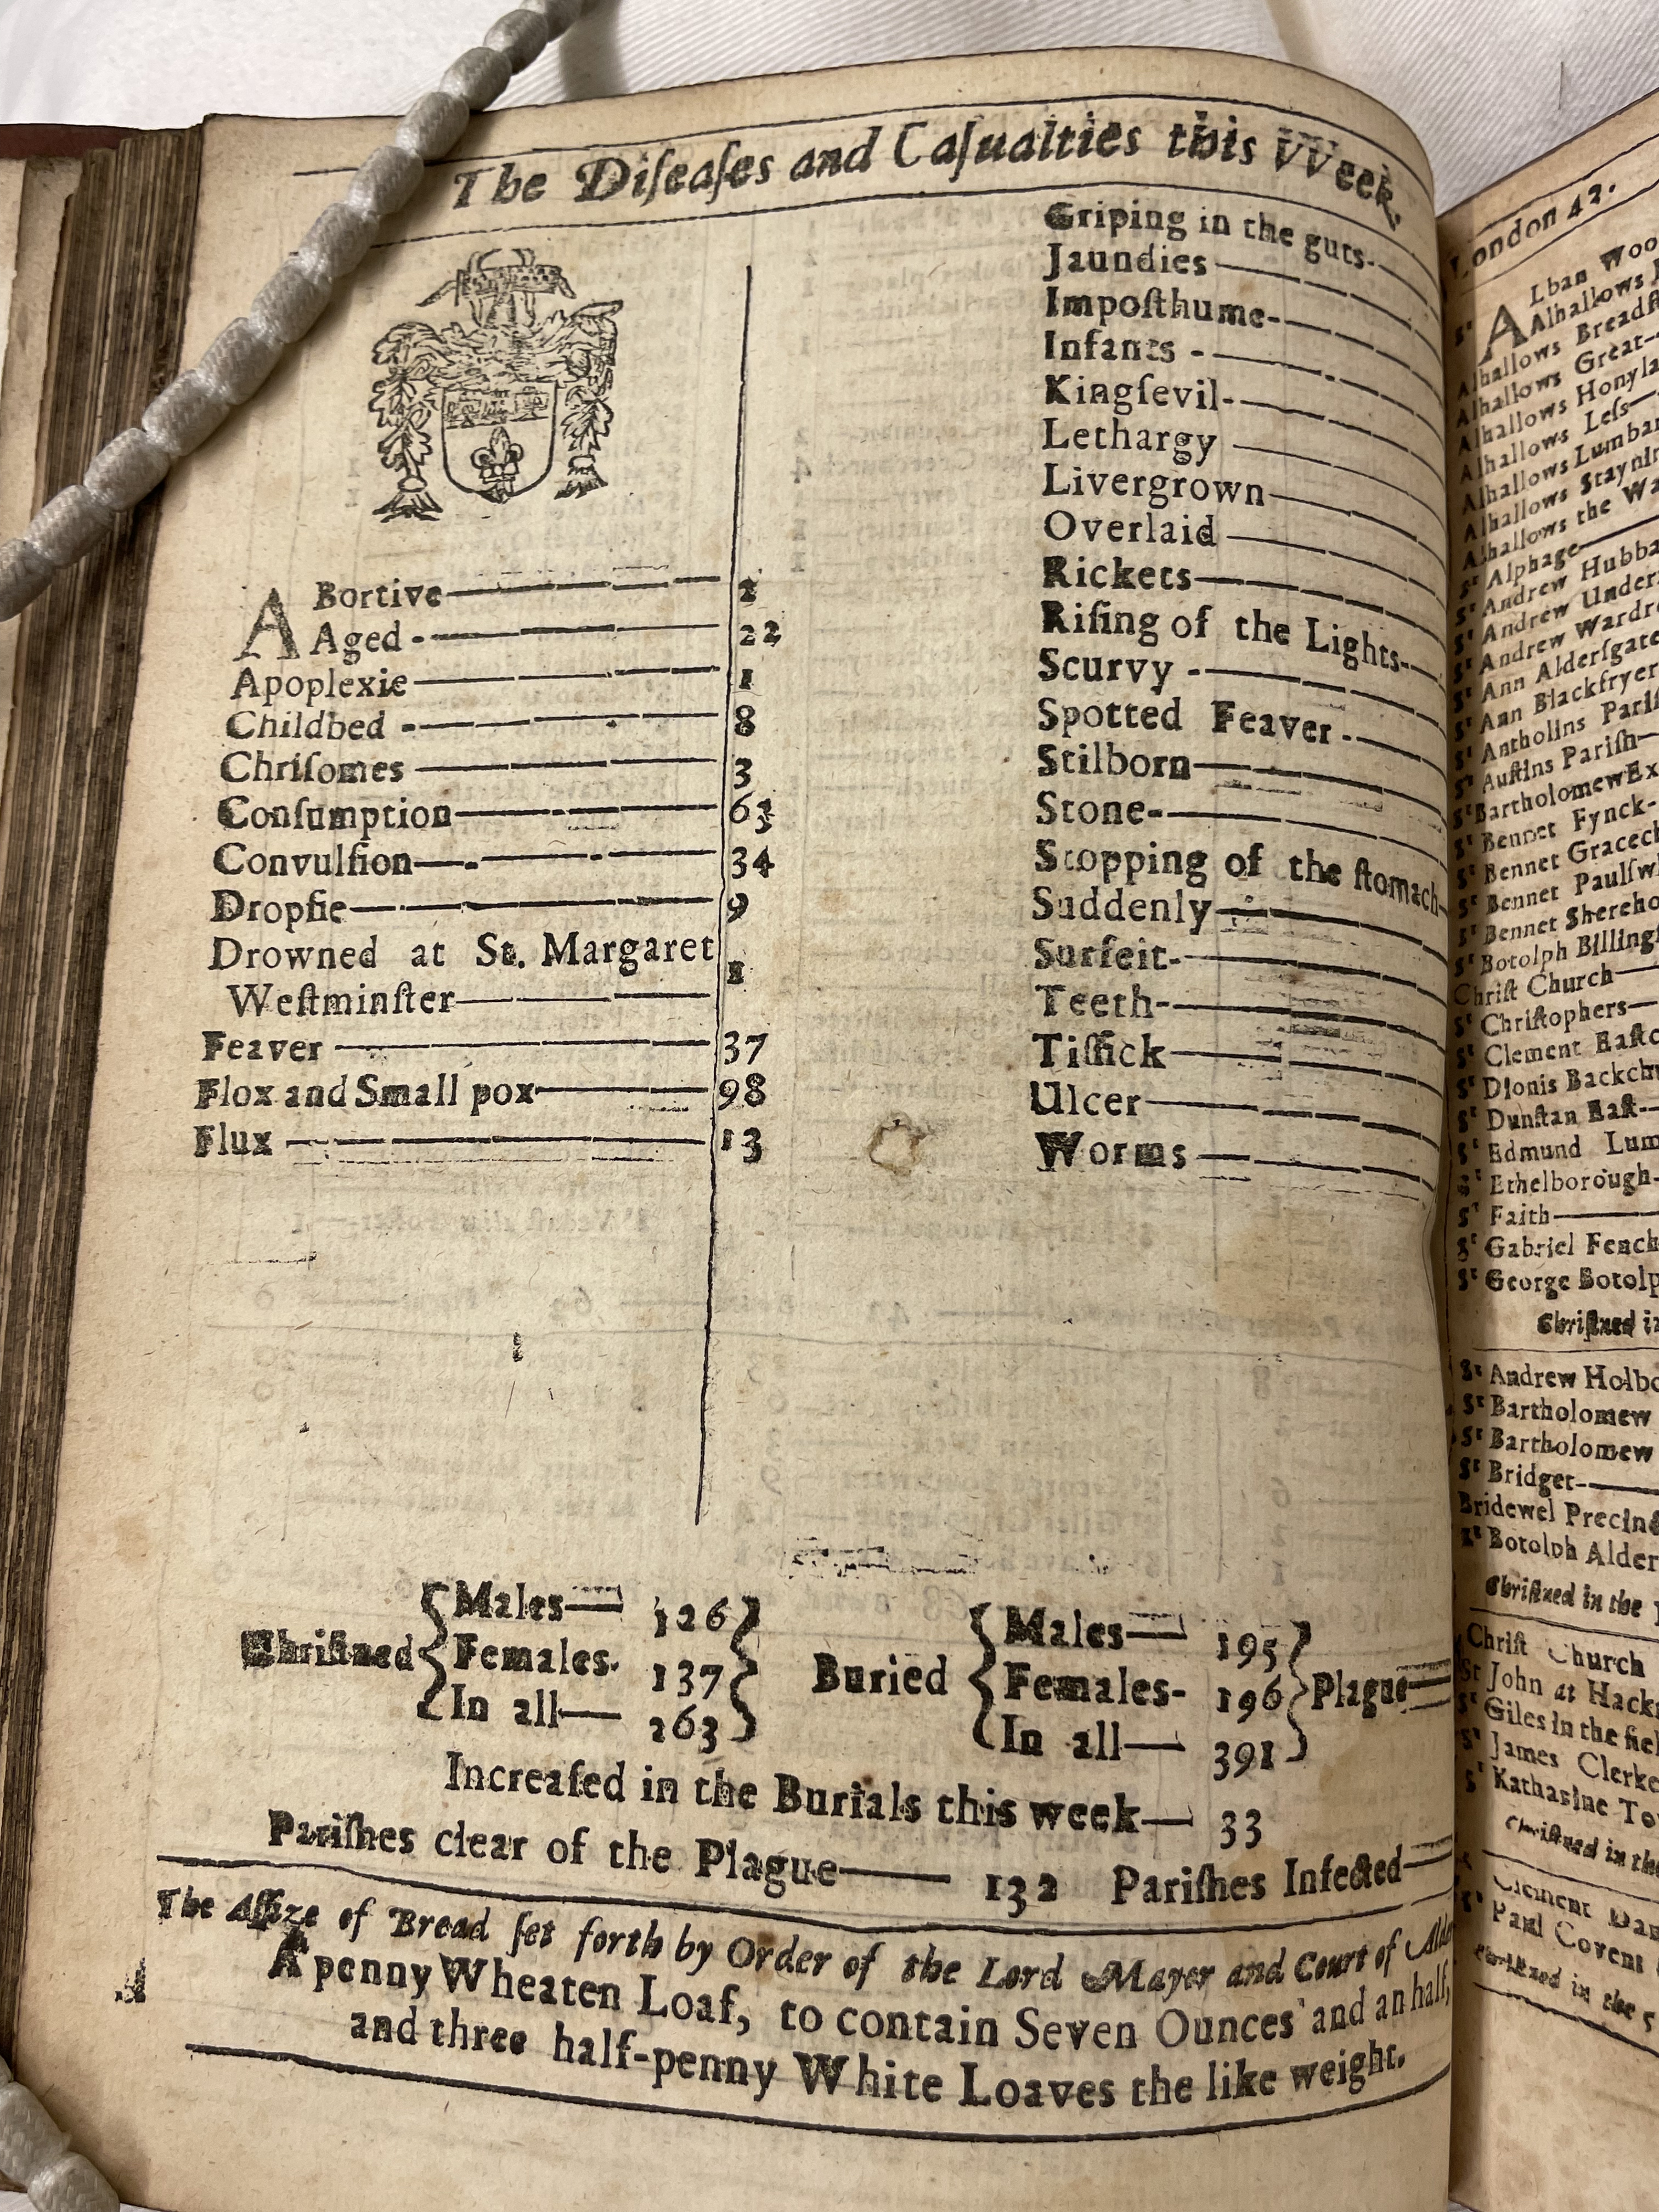 The Diſeaſes and Caſualties this VVeek.
ABortive 2
Aged 22
Apoplexie 1
Childbed 8
Chriſomes 3
Conſumption 63
Convulſion 34
Dropſie 9
Drowned at St. Margaret
Weſtminſter 1
Feaver 37
Flox and Small pox 98
Flux 13
Griping in the guts
Jaundies
Impoſthume
Infants
Kingſevil
Lethargy
Livergrown
Overlaid
Rickets
Riſing of the Lights
Scurvy
Spotted Feaver
Stilborn
Stone
Stopping of the ſtomach
Suddenly
Surfeit
Teeth
Tiſſick
Ulcer
Worms
Chriſtned
Males 126
Females 137
In all 263
Buried
Males 195
Females 196
In all 391
Plague
Increaſed in the Burials this week 33
Pariſhes clear of the Plague 132 Pariſhes Infected
The Aſſize of Bread ſet forth by Order of the Lord Mayer and Court of
A penny Wheaten Loaf, to contain Seven Ounces and an half,
and three half-penny White Loaves the like weight.
London 42.
ALban
Alhallows
Alhallows
Alhallows Great
Alhallows
Alhallows Leſs
Alhallows
Alhallows
Alhallows the
Sᵗ Alphage
Sᵗ Andrew
Sᵗ Andrew
Sᵗ Andrew
Sᵗ Ann
Sᵗ Ann
Sᵗ Antholins
Sᵗ Auſtins Pariſh
Sᵗ Bartholomew
Sᵗ Bennet Fynck
Sᵗ Bennet
Sᵗ Bennet
Sᵗ Bennet
Sᵗ Botolph
Chriſt Church
Sᵗ Chriſtophers
Sᵗ Clement
Sᵗ Dionis
Sᵗ Dunſtan Eaſt
Sᵗ Edmund
Sᵗ Ethelborough
Sᵗ Faith
Sᵗ Gabriel
Sᵗ George
Chriſtned
Sᵗ Andrew
Sᵗ Bartholomew
Sᵗ Bartholomew
Sᵗ Bridget
Bridewel
Sᵗ Botolph
Chriſtned in the
Chriſt Church
St John at
Sᵗ Giles in the
Sᵗ James
Sᵗ Katharine
Chriſtned in the
Clement
Sᵗ Paul
Chriſtned in the 5